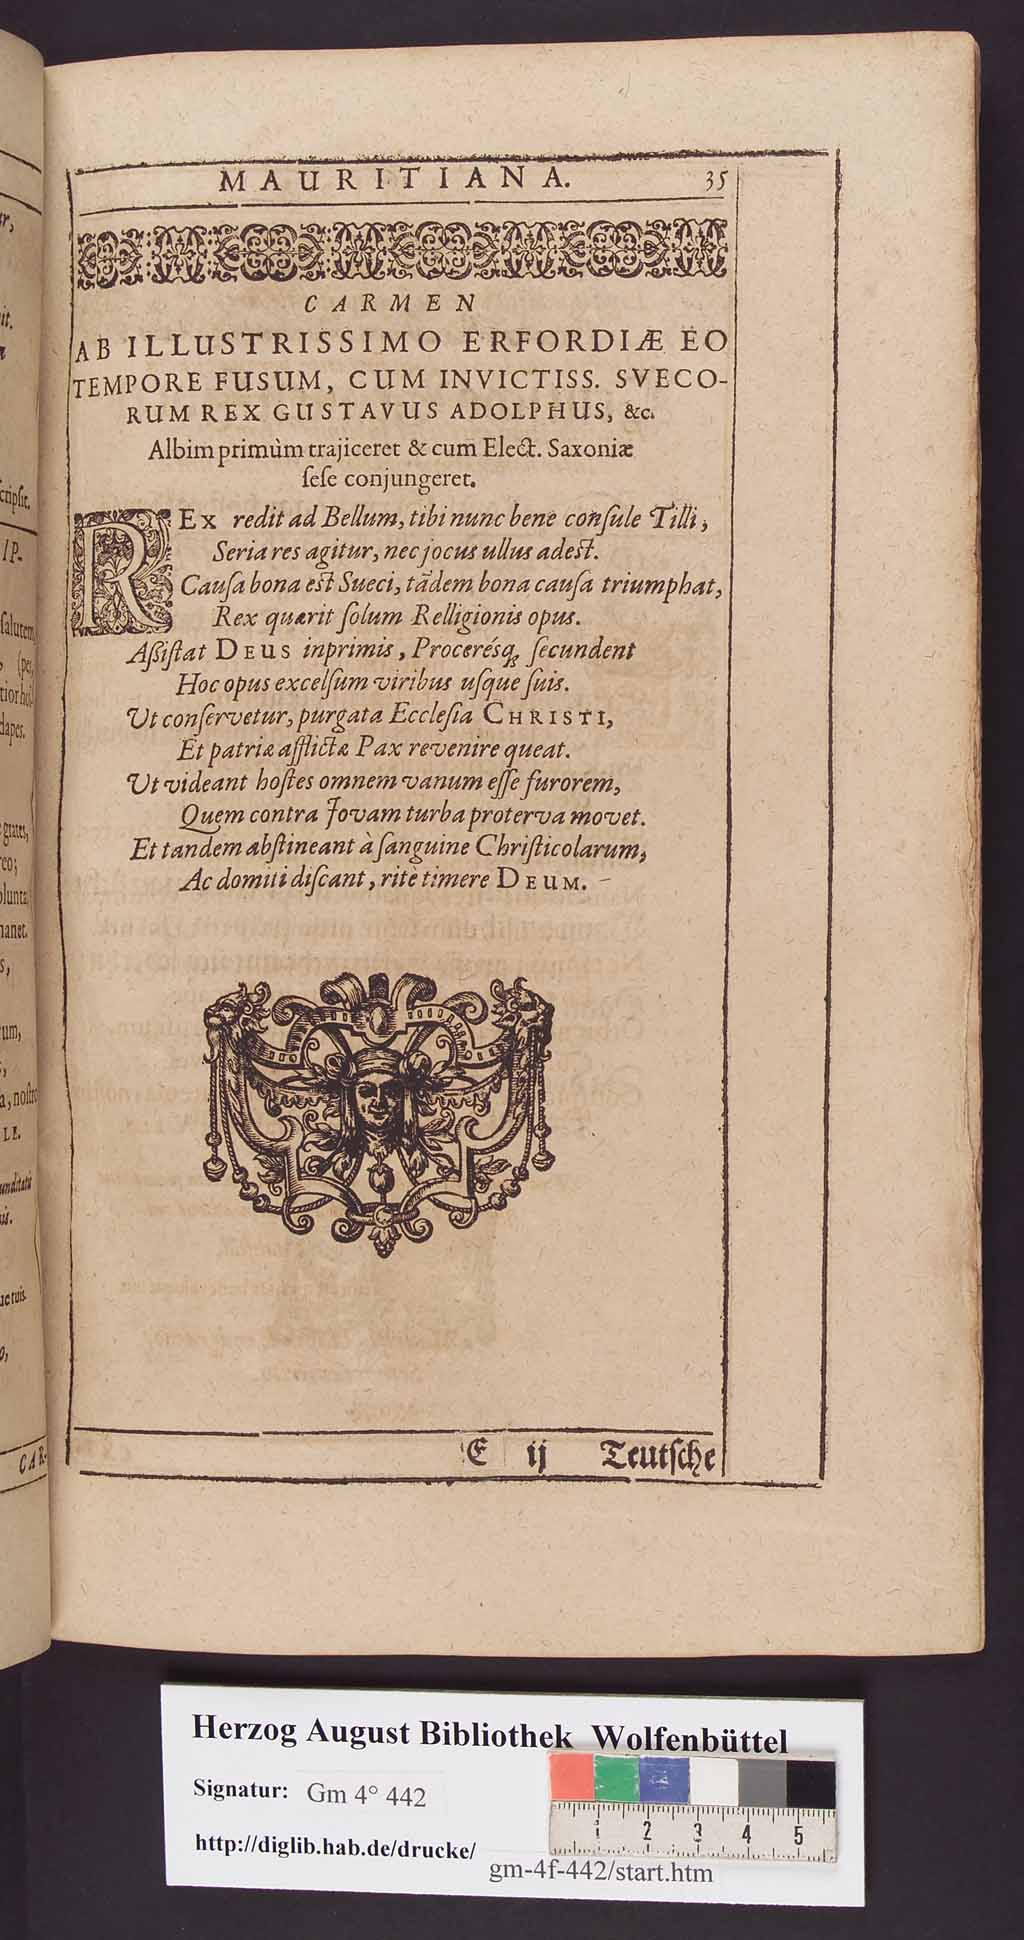 MAURITIANA. 35
CARMEN
AB ILLUSTRISSIMO ERFORDIÆ EO
TEMPORE FUSUM, CUM INVICTISS. SVECO-
RUM REX GUSTAVUS ADOLPHUS, &c.
Albim primùm trajiceret & cum Elect. Saxoniæ
ſeſe conjungeret.
REX redit ad Bellum, tibi nunc bene conſule Tilli,
Seria res agitur, nec jocus ullus adest.
Cauſa bona est Sueci, tãdem bona cauſa triumphat,
Rex quærit ſolum Relligionis opus.
Aßiſtat DEUS inprimis, Procerésq; ſecundent
Hoc opus excelſum viribus uſque ſuis.
Ut conſervetur, purgata Eccleſia CHRISTI,
Et patriæ afflictæ Pax revenire queat.
Ut videant hoſtes omnem vanum eſſe furorem,
Quem contra Jovam turba proterva movet.
Et tandem abſtineant à ſanguine Chriſticolarum,
Ac domiti diſcant, ritè timere DEUM.
E ij Teutſche
it.
cripſit.
IP-
ſalutem
dapes.
grates,
nanet.
um,
a, noſtro
LE.
CAR-
Herzog August Bibliothek Wolfenbüttel
Signatur: Gm 4° 442
http://diglib.hab.de/drucke/
gm-4f-442/start.htm
1 2 3 4 5